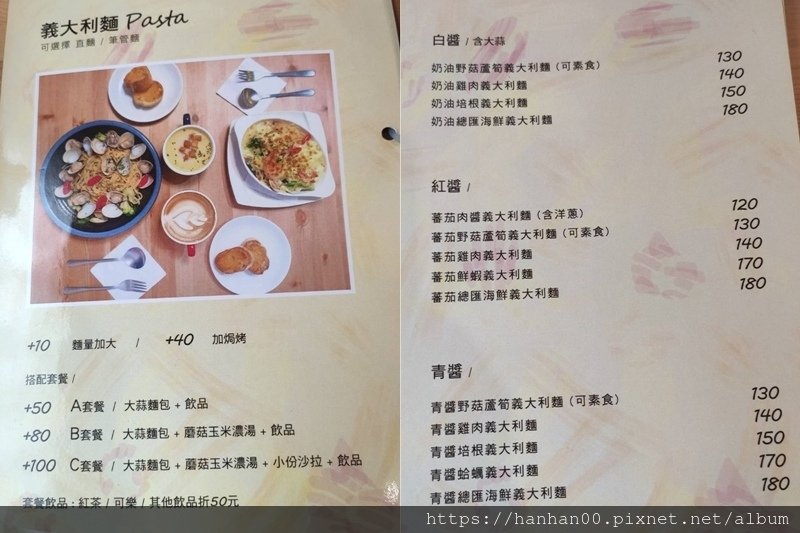 義大利麵 Pasta
可選擇 直麵 / 筆管麵
+10 麵量加大 / +40 加焗烤
搭配套餐 /
+50 A套餐 / 大蒜麵包 + 飲品
+80 B套餐 / 大蒜麵包 + 蘑菇玉米濃湯 + 飲品
+100 C套餐 / 大蒜麵包 + 蘑菇玉米濃湯 + 小份沙拉 + 飲品
套餐飲品 : 紅茶 / 可樂 / 其他飲品折50元
白醬 / 含大蒜
奶油野菇蘆筍義大利麵 (可素食) 130
奶油雞肉義大利麵 140
奶油培根義大利麵 150
奶油總匯海鮮義大利麵 180
紅醬 /
蕃茄肉醬義大利麵 (含洋蔥) 120
蕃茄野菇蘆筍義大利麵 (可素食) 130
蕃茄雞肉義大利麵 140
蕃茄鮮蝦義大利麵 170
蕃茄總匯海鮮義大利麵 180
青醬 /
青醬野菇蘆筍義大利麵 (可素食) 130
青醬雞肉義大利麵 140
青醬培根義大利麵 150
青醬蛤蠣義大利麵 170
青醬總匯海鮮義大利麵 180
https://hanhan00.pixnet.net/album